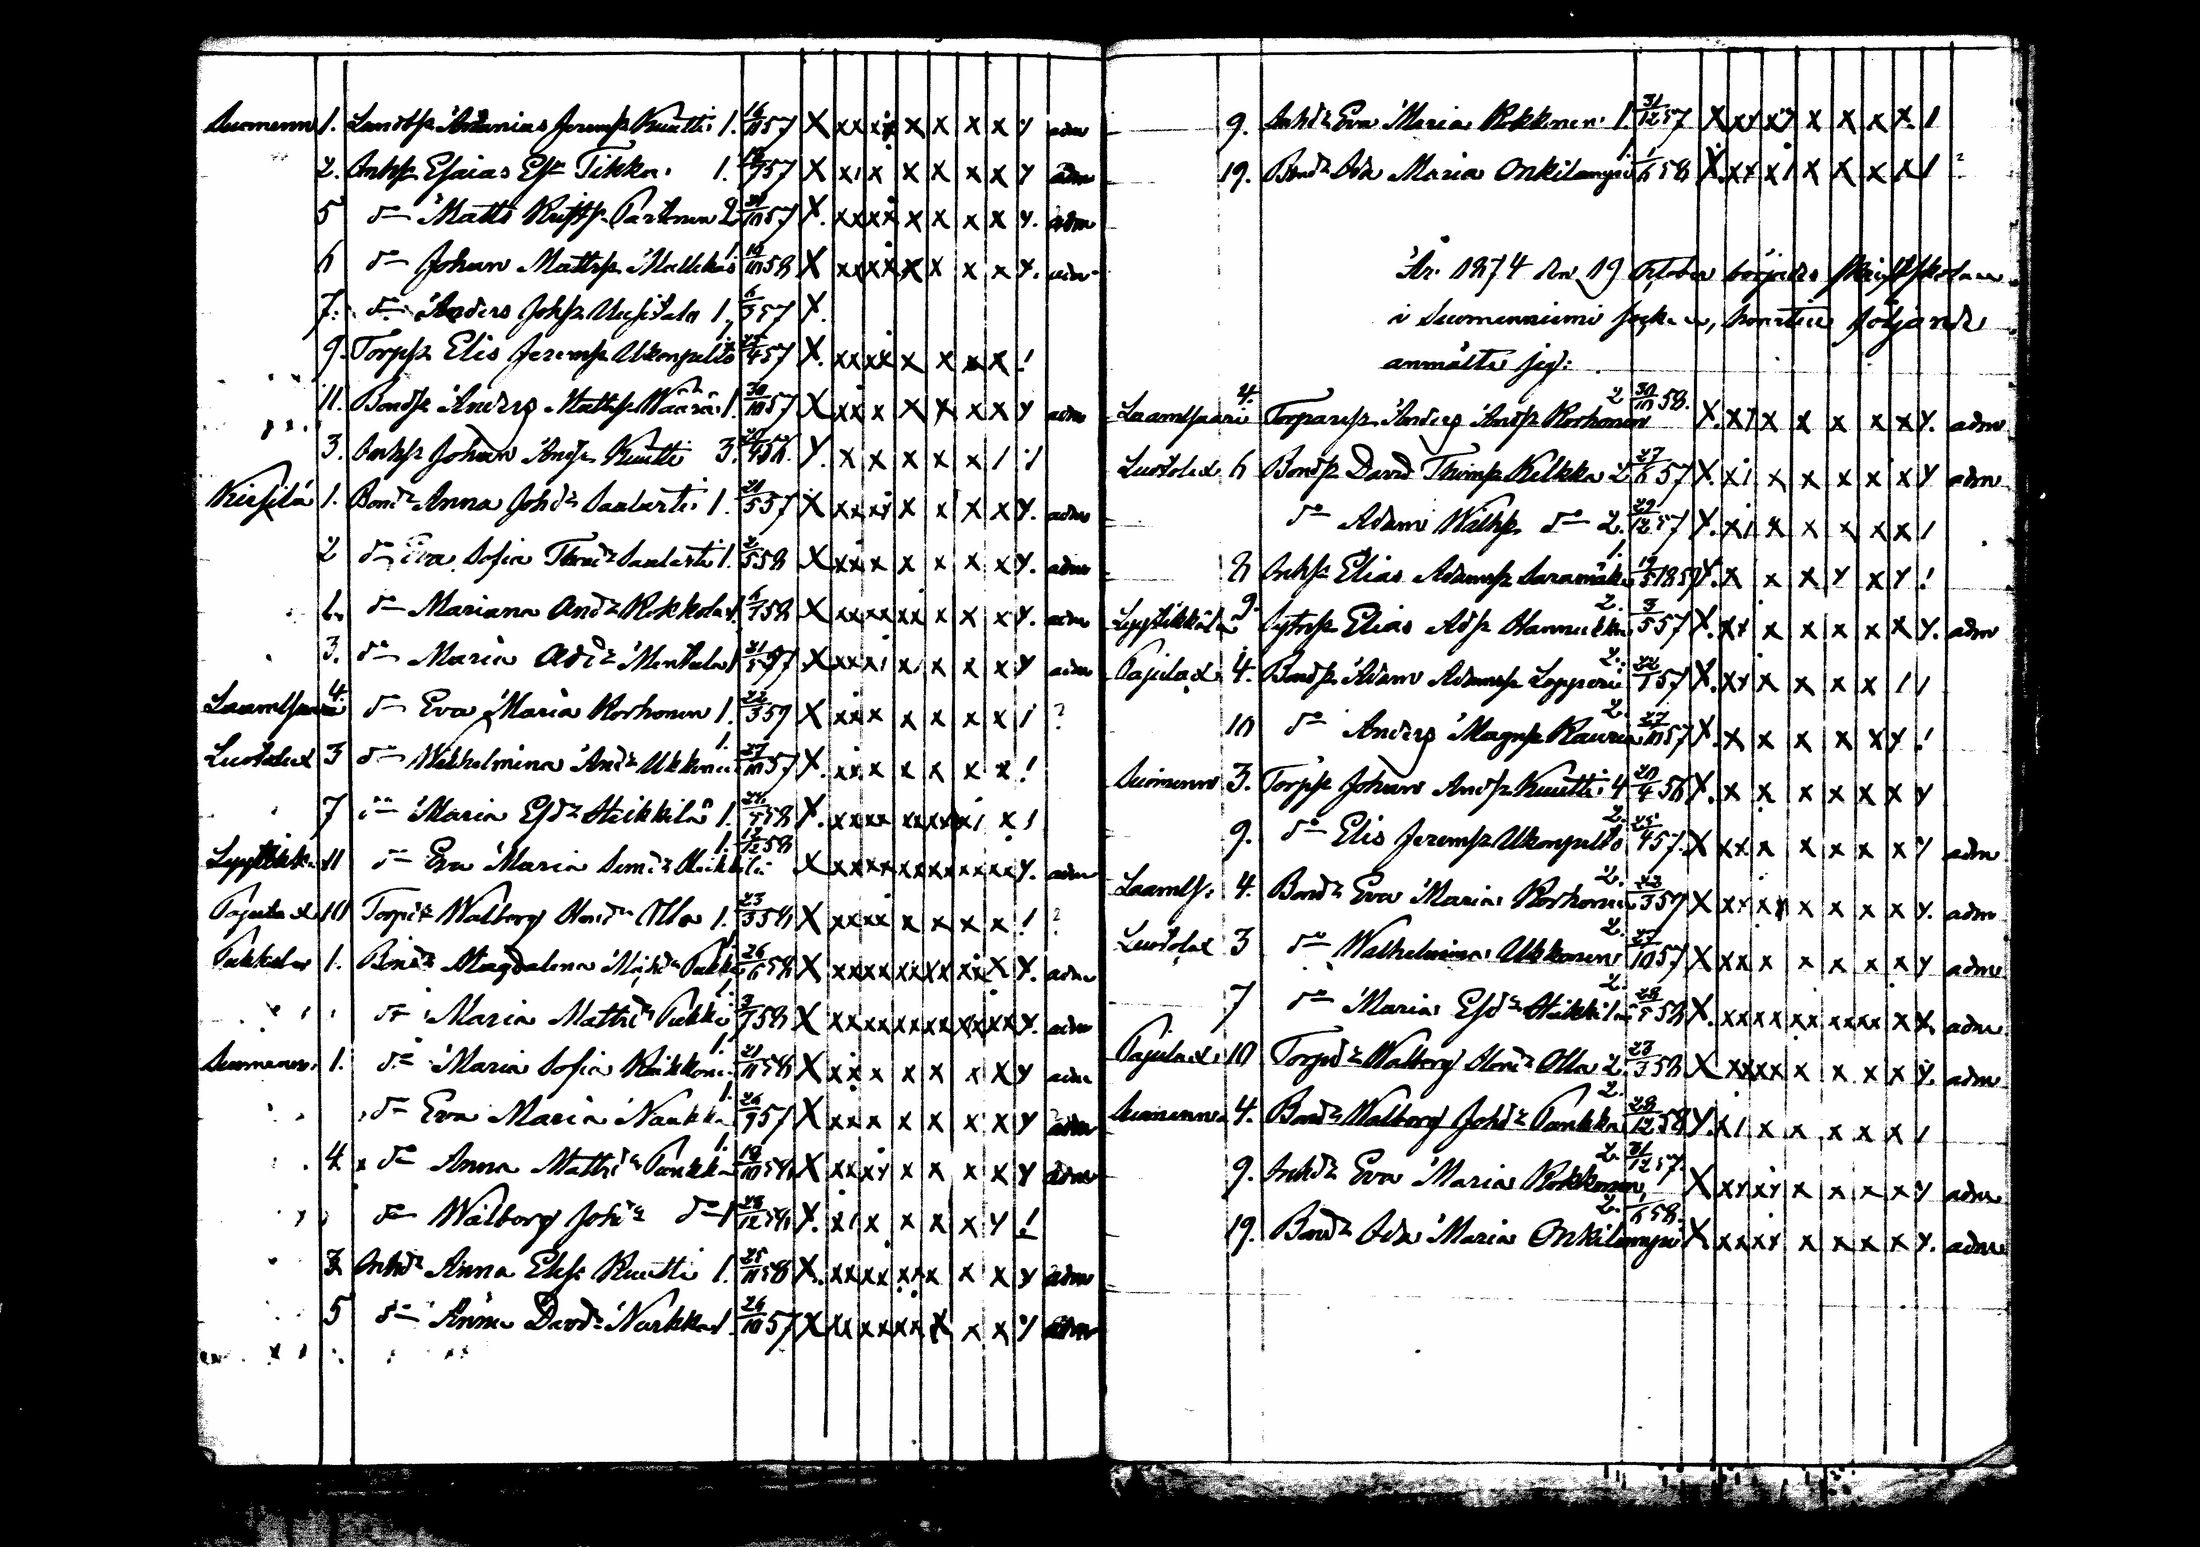 Suomenn 1. Landtsp. Ananias Jeremsp. Kuutti 1. 16/11 57 X xx xx x x x x y adm
2. Inhsp Esaias Essn Tikka 1. 57 X x1 x x x x x y adm
5 do Matts Partanen 2 21/10 57 X. xx xx x x x x y. adm
6 do Johan Mattssp Mallikas 1. 19/10 58 X xx xx x x x x y. adm
7. do Anders Johsp Uusitalo 1. 6/3 57 X.
9. Torpsp Elis Jeremsp Ukonpelto 1. 25/4 57 X. xx xx x x x x !
11. Bondsp Anders Mattssp Wäärä 1. 30/10 57 X xx x x x x x y adm
3. Inhsp Johan Andsp Kuutti 3. 20/4 56. Y. x x x x x 1 1
Kiesilä 1. Bondr Anna Johdr Saularti 1. 21/5 57 X xx xy x x x x y. adm
2 do Eva Sofia Saularti 1. 2/5 58 X xx x x x x x y. adm
1. do Mariana Anddr Rokkola 1. 6/7 58 X xx xx xx x x x y. adm
3. do Maria Addr Menttula 1. 21/5 57 X xx x1 x x x x y adm
Laamlsaari 4. do Eva Maria Korhonen 1. 22/3 59 X xx x x x x x 1 ?
Luotolax 3 do Wilhelmina Anddr Ukkonen 1. 27/10 57 X. xx x x x x x !
7 do Maria Esdr Heikkilä 1. 58 X. xx xx xx xx x1 x !
Lyytikk. 11 do Eva Maria Simdr Heikkilä 1. 17/12 58 X xx xx xx xx xx xx y. adm
Pajulax 10 Torpdr Walborg Hendr Olla 1. 23/3 58 X xx xx x x x x ! ?
Pukkila 1. Bondr Magdalena Pukki 1. 26/6 58 X xx xx xx xx xx x y. adm
do Maria Mattsdr Pukki 1. 3/7 58 X xx xx xx xx xx xx y. adm
Suomenn. 1. do Maria Sofia Reikkonen 1. 21/11 58 X xx x x x x x y adm
do Eva Maria Naukka 1. 26/9 57 X xx x x x x x y adm
4 do Anna Mattsdr Pankka 1. 19/10 58 X xx xy x x x x y adm
do Walborg Johdr do 1 28/12 58 X. x1 x x x x y !
7 Inhdr Anna Elssp Kuutti 1. 25/11 58 X. xx xx xx x x x y adm
5 do Anna Davdr Narkka 1. 26/10 57 X xx xx xx x x x y adm
9. Inhdr Eva Maria Rokkonen 1. 31/12 57 X xy xy x x x x. 1
19. Bondr Ada Maria Onkilampi 1. 1/6 58 X. xy x1 x x x x 1 ?
År 1874 den 19 October började skriftskolan
i Suomenniemi socken, hvartill följande
anmälte sig:
Laamlsaari 4. Torparesp Anders Andsp Korhonen 2 30/10 58. X. x1 x x x x x y. adm
Luotolax 6 Bondsp David Thomsp Kilkka 2 27/6 57 X. x1 x x x x x y adm
do Adam Wilhsp do 2. 29/12 57 X. x1 x x x x x 1
8 Inhsp Elias Adamsp Saramäki 1. 19/5 1859 X. x x x y x y !
Lyytikkälä 9. Sytnsp Elias Adsp Hannukka 2. 3/5 57 X. xy x x x x x y. adm
Pajulax 4. Bondsp Adam Adamsp Lopperi 2. 22/1 57 X. xy x x x x 1 1
10 do Anders Magnsp Rauria 2. 27/10 57 X. x x x x x y !
Suomenn 3. Torpsp Johan Andsp Kuutti 4 20/4 56 X. x x x x x x y
9. do Elis Jeremsp Ukonpelto 2. 25/4 57. X xx x x x x x y adm
Laamls. 4. Bondr Eva Maria Korhonen 2. 22/3 59 X xy xy x x x x y. adm
Luotolax 3 do Walhelmina Ukkonen 2. 27/10 57 X xx x x x x x y adm
7 do Maria Esdr Heikkilä 2. 58 X. xx xx xx xx xx x y. adm
Pajulax 10 Torpdr Walborg Hendr Olla 2. 23/3 58 X xx xx x x x x y. adm
Suomenn 4. Bondr Walborg Johdr Pankka 2. 28/12 58 Y. x1 x x x x x 1
9. Inhdr Eva Maria Rokkonen 2. 31/12 57. X xy xy x x x x y adm
19. Bondr Ada Maria Onkilampi 2. 1/6 58. X xx xy x x x x y. adm